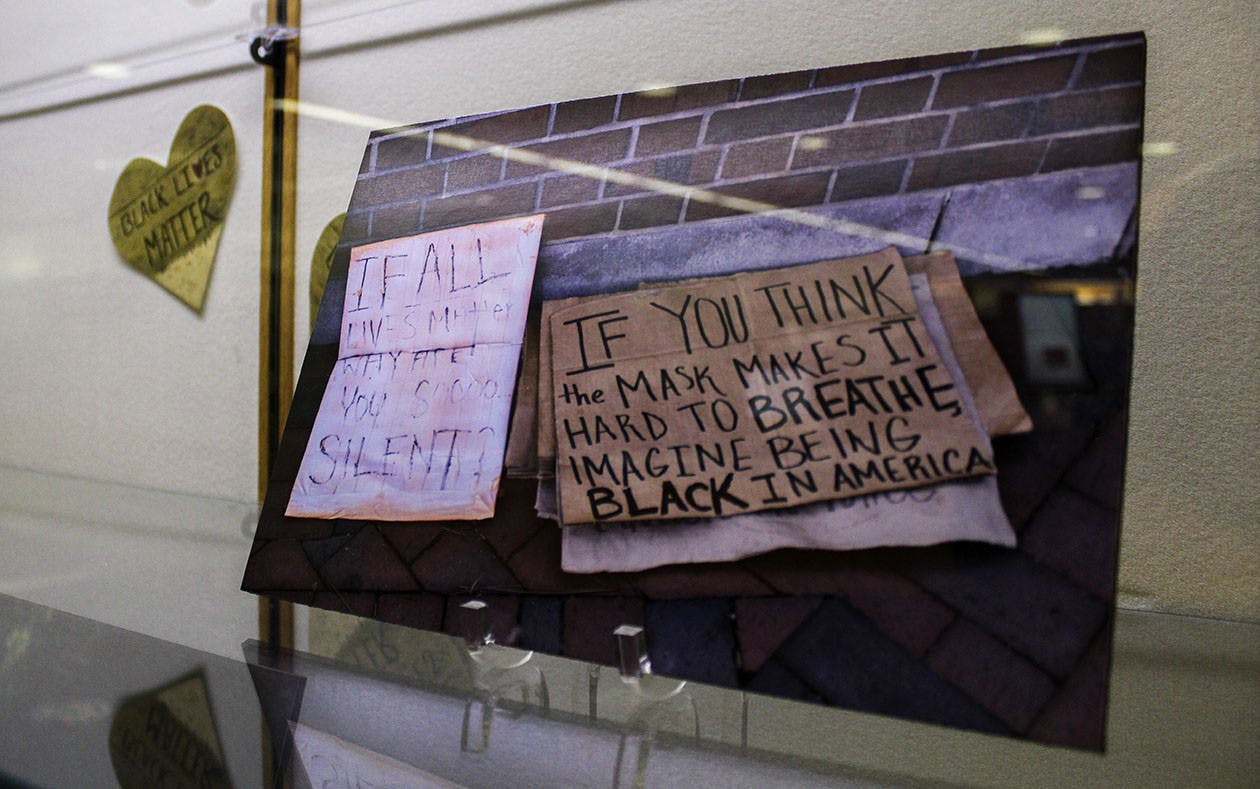 BLACK LIVES
MATTER
IF ALL
LIVES Matter
WHY ARE
YOU SOOOO
SILENT?
IF YOU THINK
the MASK MAKES IT
HARD TO BREATHE,
IMAGINE BEING
BLACK IN AMERICA